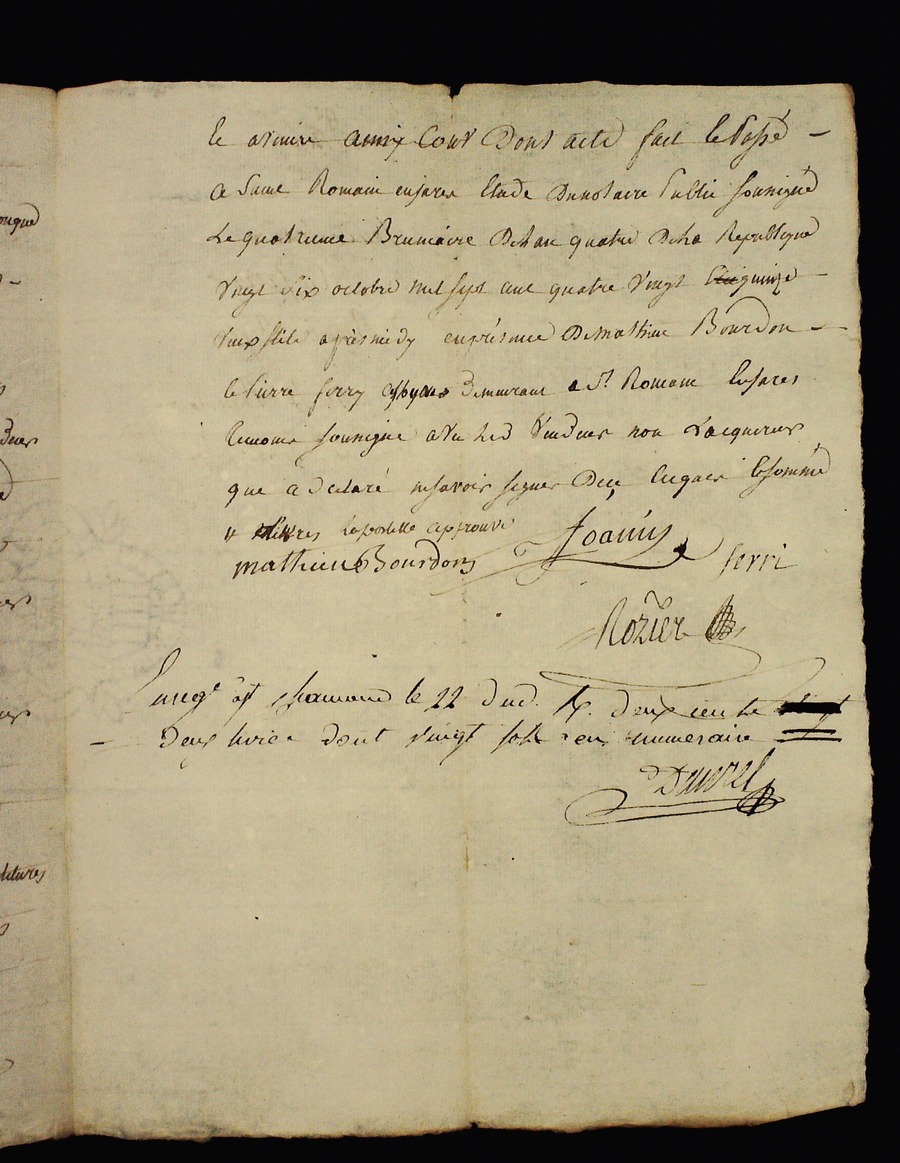 le avouere Cour Dont acte fait le Passé
a Saint Romain enjares Etude Dunotaire Public soussigné
Le quatrieme Brumaire Delan quatre Dela Republique
vingt six octobre mil sept cent quatre vingt quinze
vieux stile apresmedy enpresence Demathieu Bourdon
le Pierre ferry Demeurant a St Romain Enjares
temoins soussigné avec led vendeur non Lacquereur
que a Declaré nesavoir signer Dece Enquis le sommé
approuvé
mathieu Bourdon Joanis ferri
Rozier
Enregé a St chamond le 22 dud. R. deux cent
Deux livres dont vingt sols en numeraire